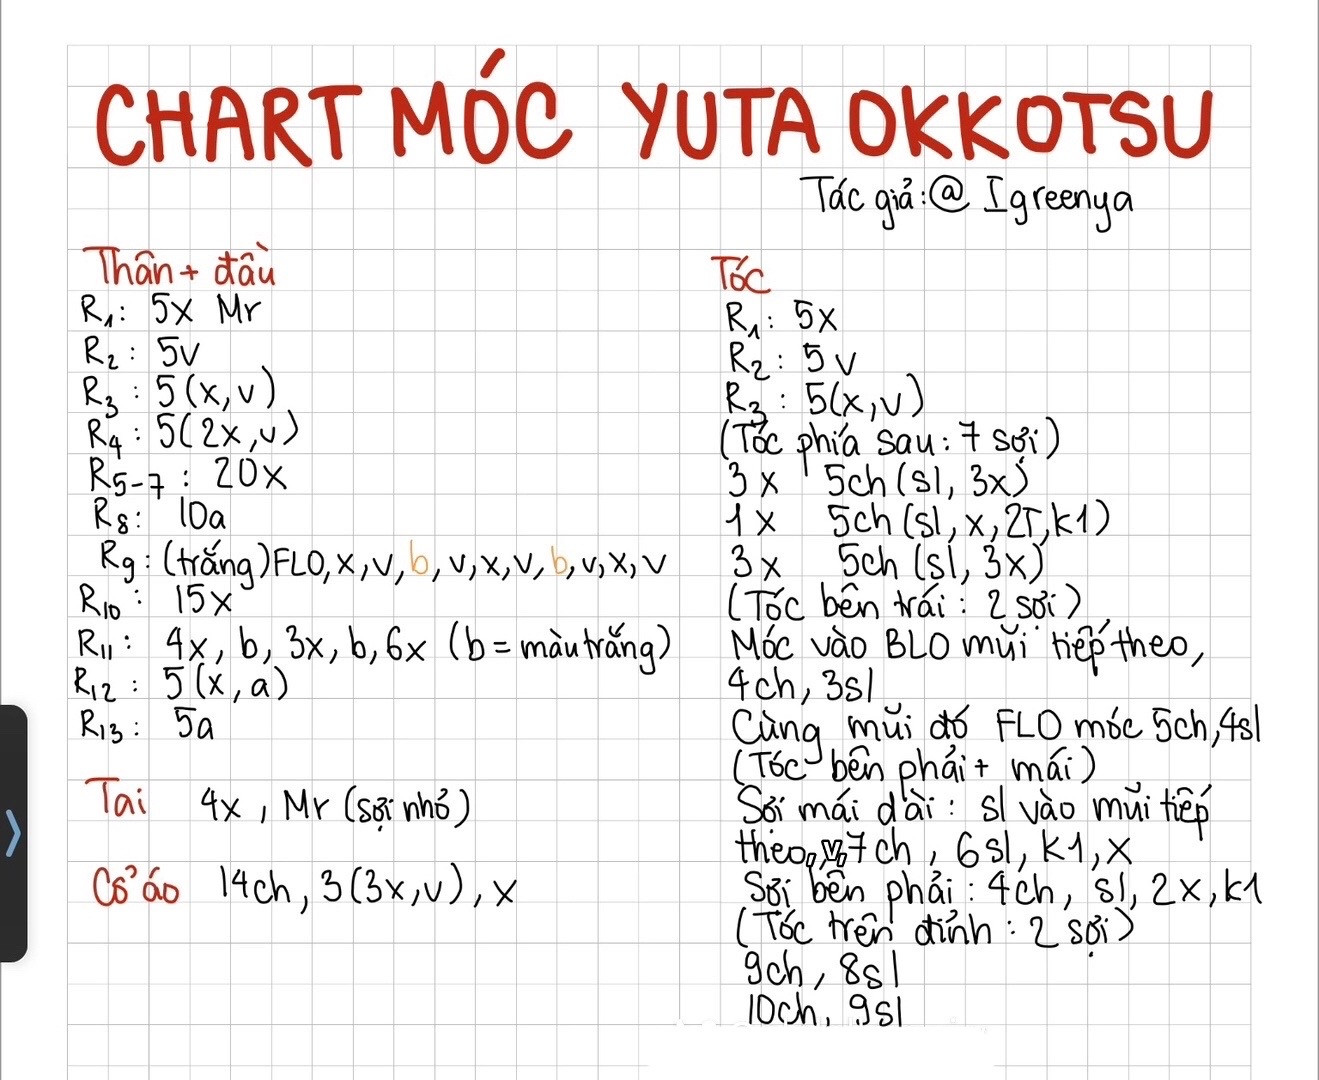 CHART MÓC YUTA OKKOTSU
Tác giả:@ Igreenya
Thân + đầu
R1: 5x Mr
R2: 5v
R3: 5(x,v)
R4: 5(2x,v)
R5-7: 20x
R8: 10a
R9: (trắng)FLO,x,v,b,v,x,v,b,v,x,v
R10: 15x
R11: 4x, b, 3x, b, 6x (b = màu trắng)
R12: 5(x, a)
R13: 5a
Tai 4x, Mr (sợi nhỏ)
Cổ áo 14ch, 3(3x,v), x
Tóc
R1: 5x
R2: 5v
R3: 5(x,v)
(Tóc phía sau: 7 sợi)
3x 5ch (sl, 3x)
1x 5ch (sl, x, 2T, k1)
3x 5ch (sl, 3x)
(Tóc bên trái: 2 sợi)
Móc vào BLO mũi tiếp theo,
4ch, 3sl
Cùng mũi đó FLO móc 5ch, 4sl
(Tóc bên phải + mái)
Sợi mái dài: sl vào mũi tiếp
theo, 7ch, 6sl, k1, x
Sợi bên phải: 4ch, sl, 2x, k1
(Tóc trên đỉnh: 2 sợi)
9ch, 8sl
10ch, 9sl